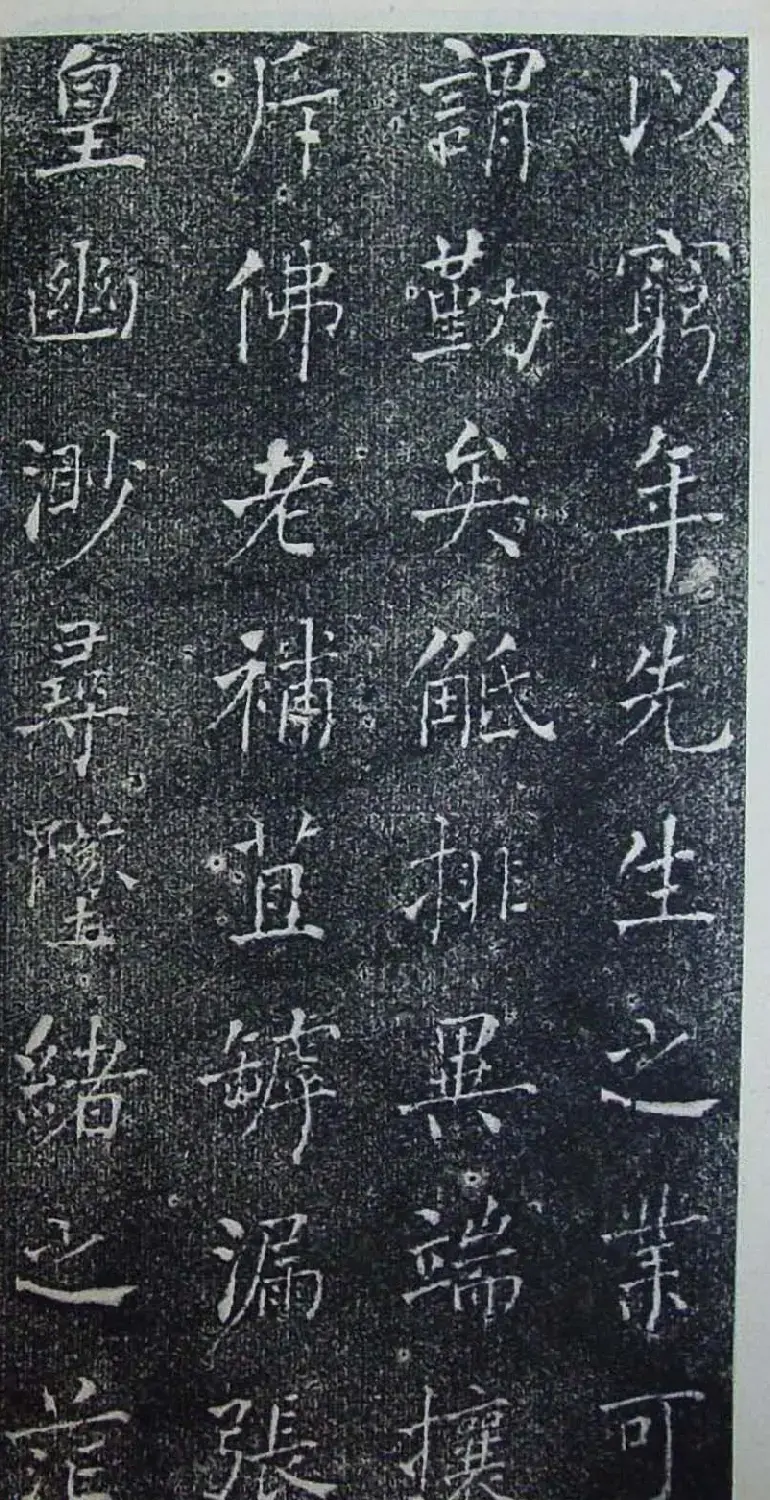 以窮年先生之業可
謂勤矣觝排異端攘
斥佛老補苴罅漏張
皇幽渺尋墜緒之茫